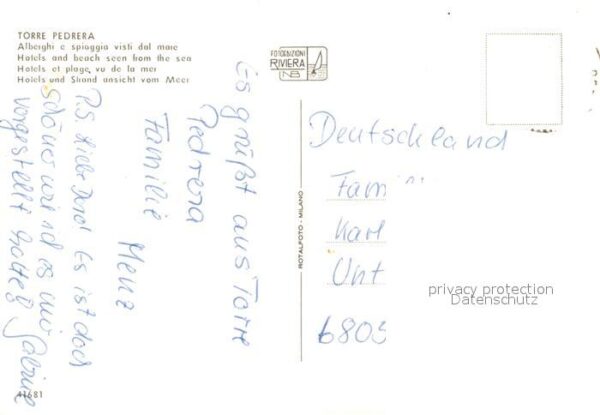 TORRE PEDRERA
Alberghi e spiaggia visti dal mare
Hotels and beach seen from the sea
Hotels et plage, vu de la mer
Hotels und Strand ansicht vom Meer
FOTOEDIZIONI
RIVIERA
NB
Es grüßt aus Torre
Pedrera
Familie
Menz
P.S. Liebe Es ist doch
schöner es mir
vorgestellt hatte Sabine
ROTALFOTO - MILANO
Deutschland
Fam
Karl
Unt
6805
privacy protection
Datenschutz
41681